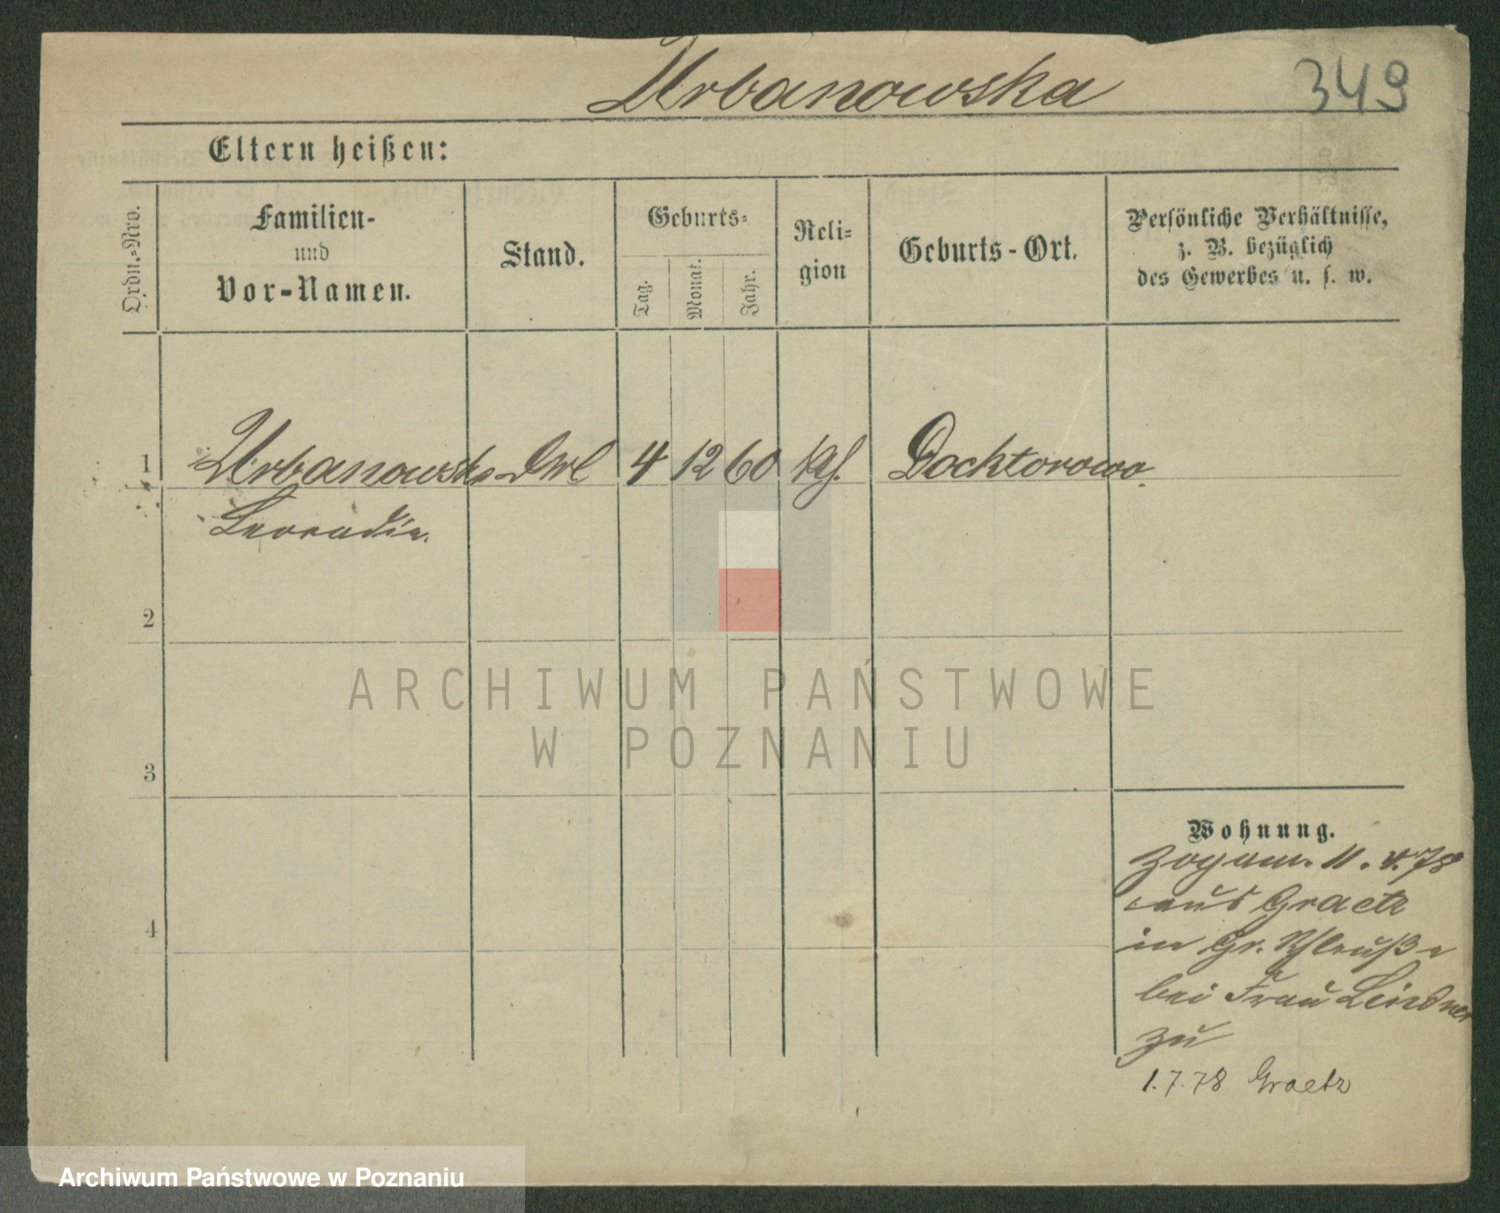 Urbanowska 349
Eltern heißen:
Ordn.-Nro.
Familien-
und
Vor-Namen.
Stand.
Geburts-
Tag.
Monat.
Jahr.
Reli-
gion
Geburts-Ort.
Persönliche Verhältnisse,
z. B. bezüglich
des Gewerbes u. s. w.
1 Urbanowska 4 12 60 Docktorowo.
Leocadia.
2
3
4
Wohnung.
11.4.78
aus Graetz
in Gr.
bei Frau Lindner
zu
1.7.78 Graetz
ARCHIWUM PAŃSTWOWE
W POZNANIU
Archiwum Państwowe w Poznaniu